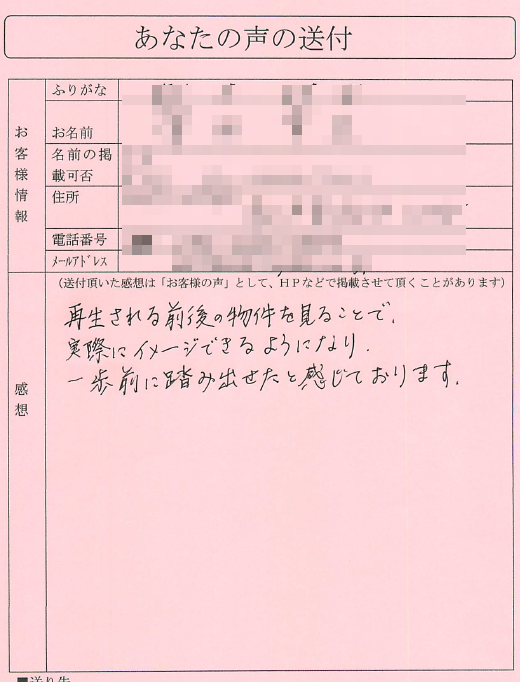 あなたの声の送付
ふりがな
お名前
名前の掲
載可否
住所
電話番号
メールアドレス
お客様情報
(送付頂いた感想は「お客様の声」として、HPなどで掲載させて頂くことがあります)
感想
再生される前後の物件を見ることで、
実際にイメージできるようになり、
一歩前に踏み出せたと感じております。
■送り先